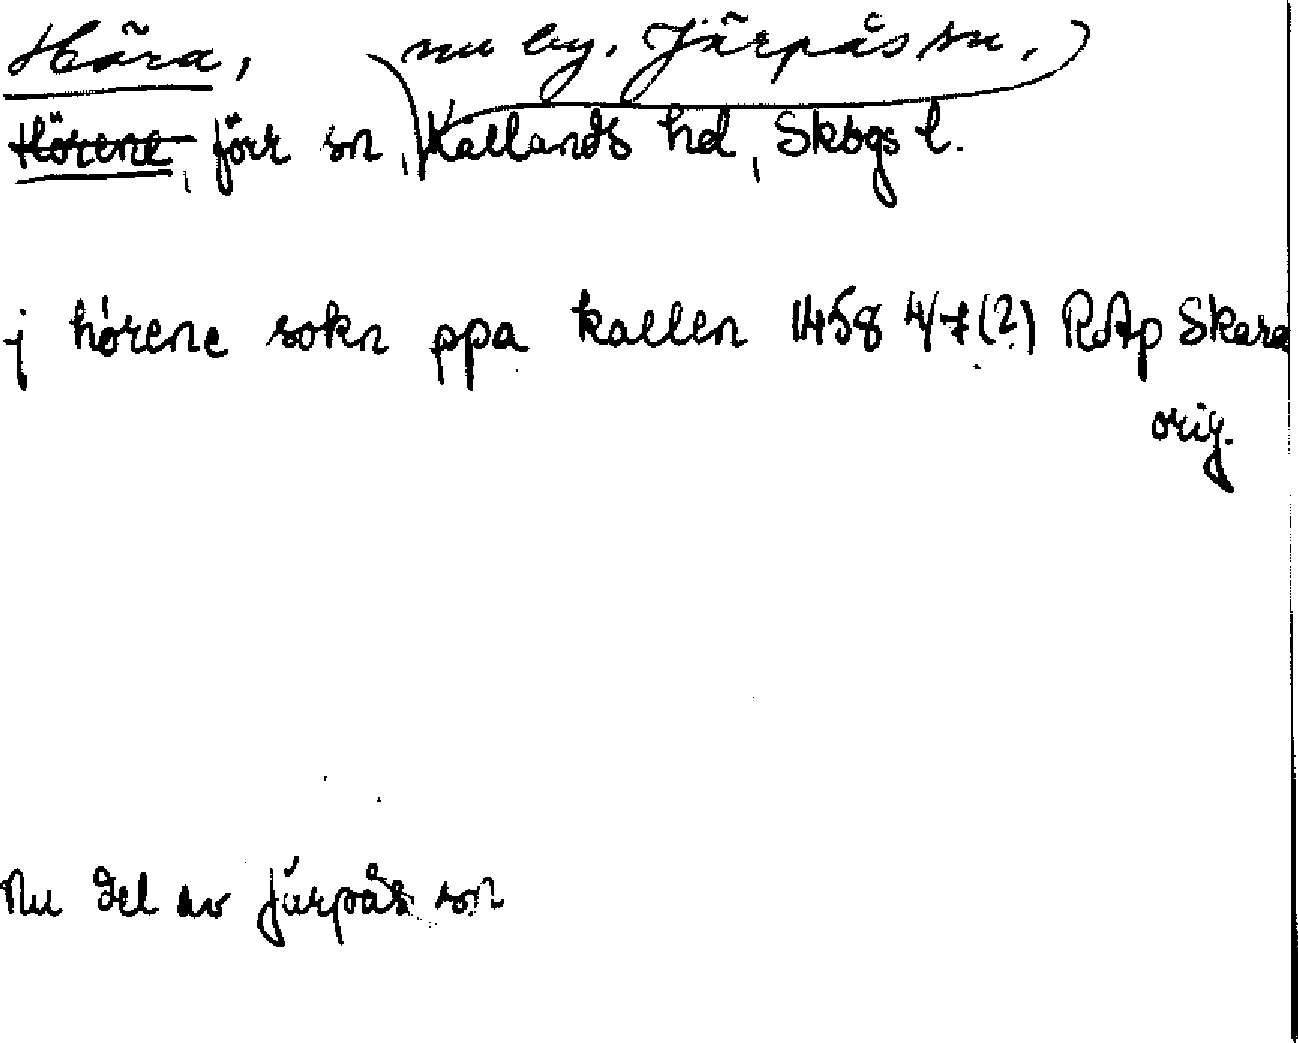 Höra, nu by. Järpås sn.
Hörene, förr sn, Kållands hd, Skbgs l.
j hørene sokn ppa kallen 1458 4/7(?) RAp Skara
orig.
Nu del av Järpås sn